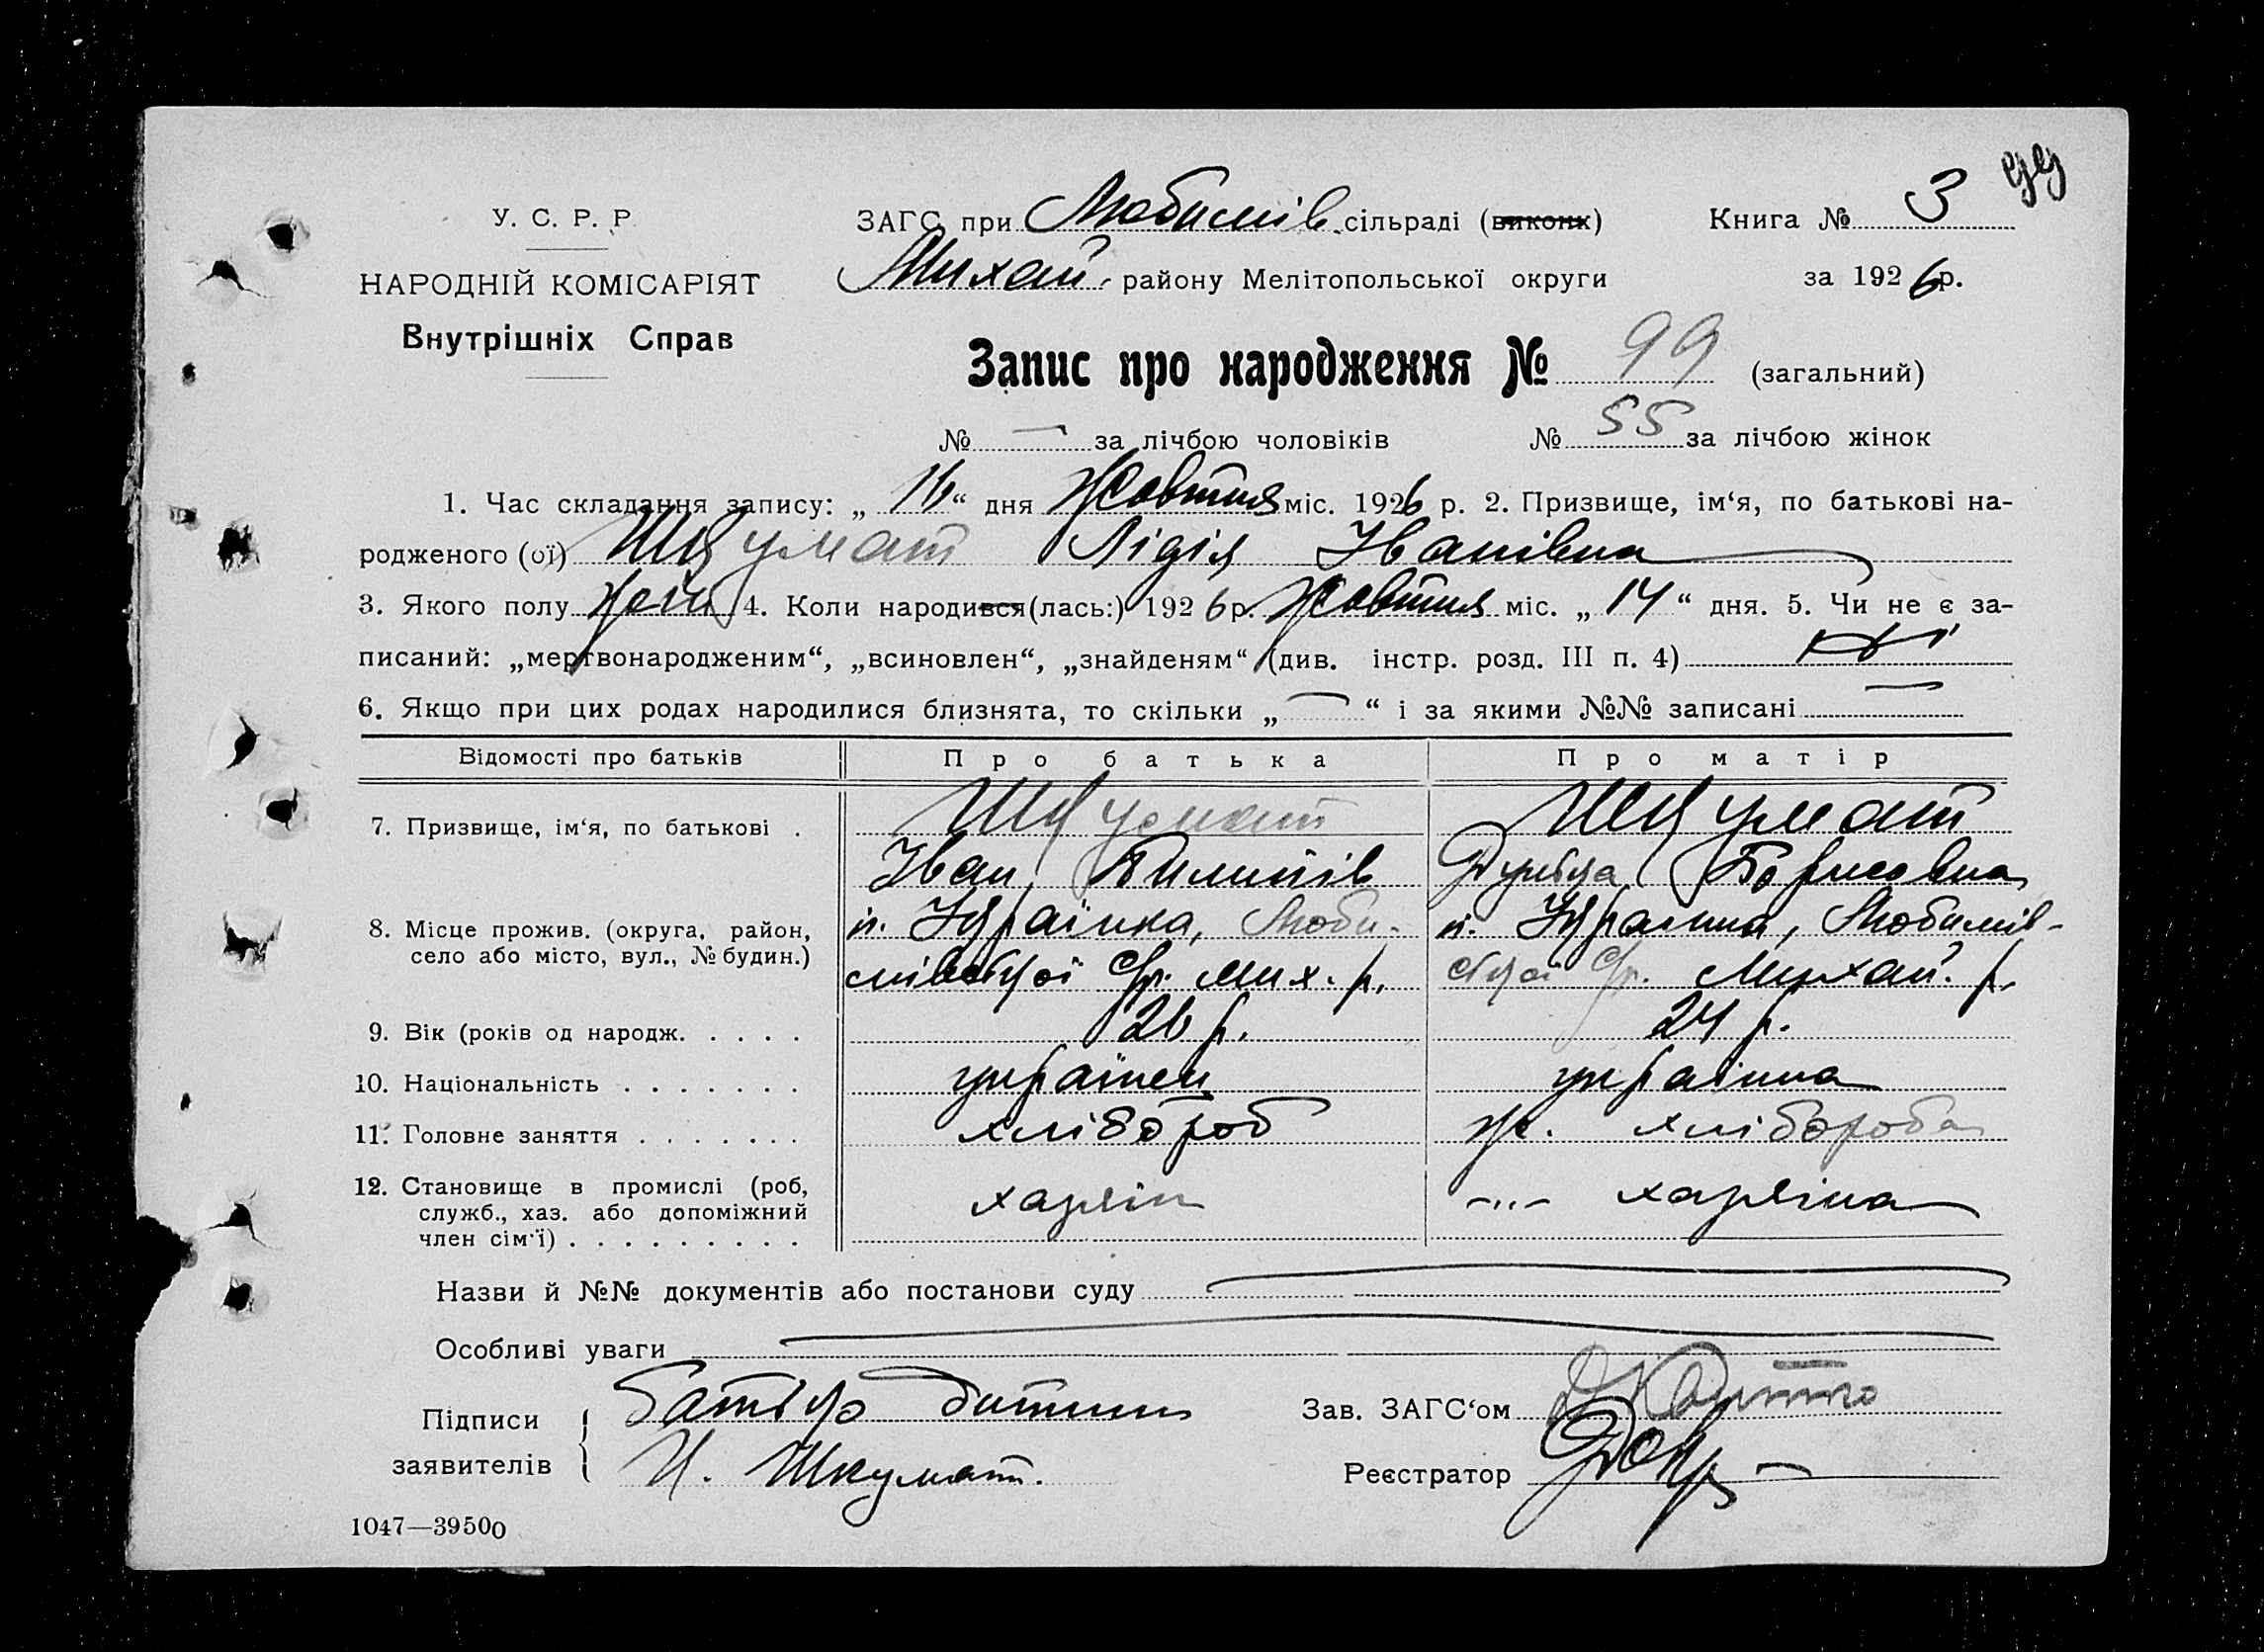 99
У. С. Р. Р.
НАРОДНІЙ КОМІСАРІЯТ
Внутрішніх Справ
ЗАГС при Любимів. сільраді (виконк)
Михай. району Мелітопольської округи
Книга № 3
за 1926 р.
Запис про народження № 99 (загальний)
№ — за лічбою чоловіків № 55 за лічбою жінок
1. Час складання запису: „16“ дня Жовтня міс. 1926 р. 2. Призвище, ім‘я, по батькові на-
родженого (ої) Шкумат Лідія Іванівна
3. Якого полу жін. 4. Коли народився (лась:) 1926 р. Жовтня міс. „14“ дня. 5. Чи не є за-
писаний: „мертвонародженим“, „всиновлен“, „знайденям“ (див. інстр. розд. III п. 4) ні
6. Якщо при цих родах народилися близнята, то скільки „—“ і за якими №№ записані —
Відомості про батьків Про батька Про матір
7. Призвище, ім‘я, по батькові . Шкумат Шкумат
Іван Борисовна
8. Місце прожив. (округа, район, п. Українка, Люби- п. Українка, Любимів-
село або місто, вул., № будин.) мівської с/р. Мих. р. ської с/р. Михай. р.
9. Вік (років од народж. . . . . 26 р. 24 р.
10. Національність . . . . . . . українец українка
11. Головне заняття . . . . . . . хлібороб ж. хлібороба
12. Становище в промислі (роб, хазяїн -„- хазяїна
служб., хаз. або допоміжний
член сім‘ї) . . . . . . . . .
Назви й №№ документів або постанови суду
Особливі уваги
Підписи
заявителів
батько дитини
И. Шкумат.
Зав. ЗАГС‘ом
Реєстратор
1047—39500